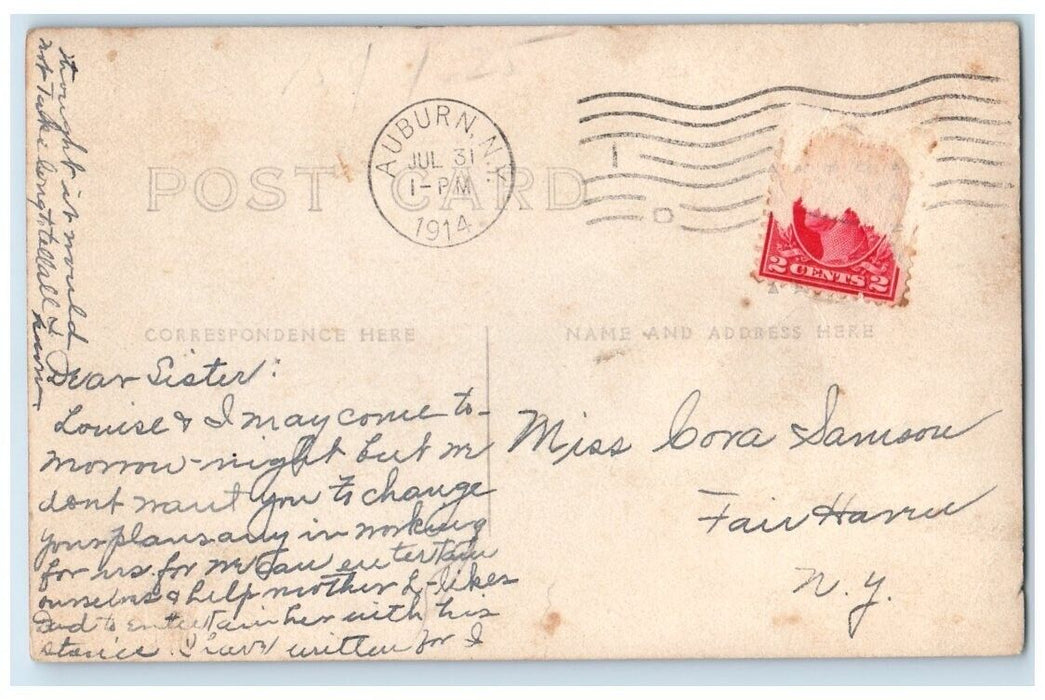 POST CARD
AUBURN, N.Y.
JUL 31
1-PM
1914
2 CENTS 2
CORRESPONDENCE HERE
NAME AND ADDRESS HERE
Dear Sister:
Louise & I may come to-
morrow-night but we
dont want you to change
your plans any in working
for us for we can entertain
ourselves & help mother L- likes
Dad to entertain her with his
stories. I have written for I
thought it would
not take long to tell all I
know
Miss Cora Samson
Fair Haven
N.Y.